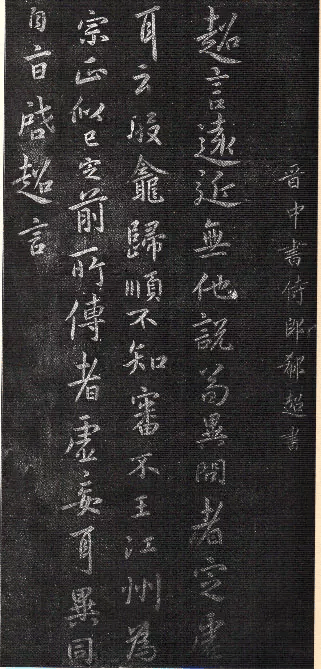 晋中書侍郎郗超書
超言遠近無他說為異問者定虛
耳云殷龕歸順不知審不王江州為
宗正似已定前所傳者虛妄耳異同
自旨啓超言